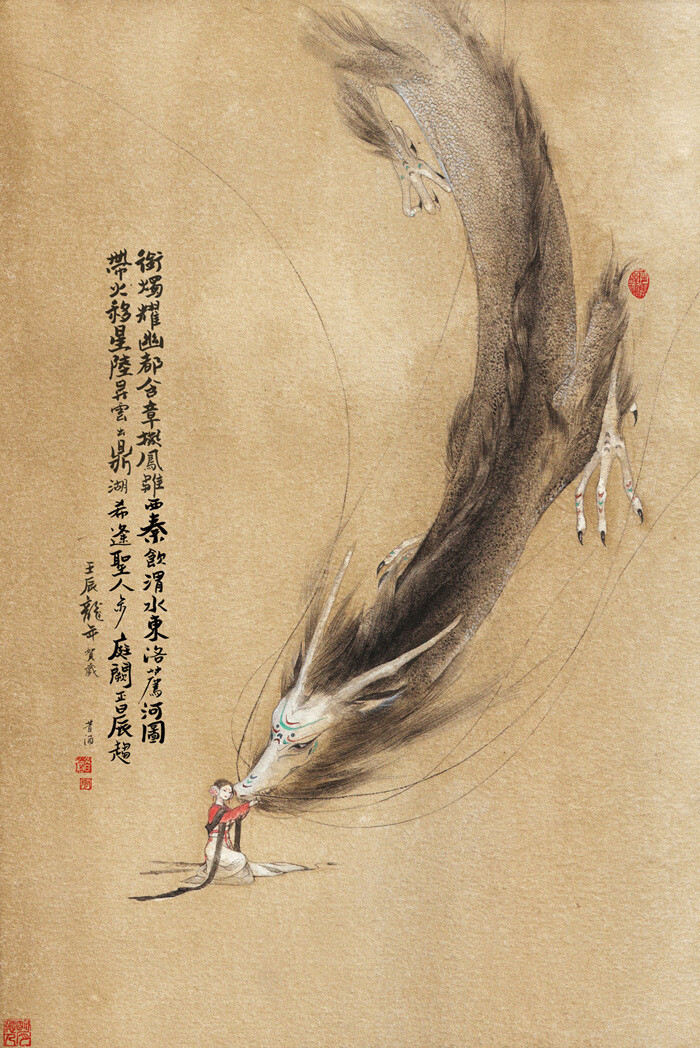 銜燭耀幽都含章擬鳳雛西秦飲渭水東洛薦河圖
帶火移星陸昇雲出鼎湖希逢聖人步庭闕正晨趨
壬辰龍年賀歲